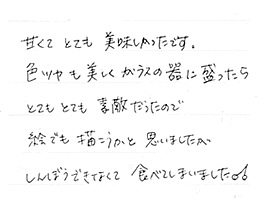 甘くて とても 美味しかったです。
色ツヤも 美しく ガラスの 器に 盛ったら
とても とても 素敵だったので
絵でも 描こうかと 思いましたが
しんぼうできなくて 食べてしまいました